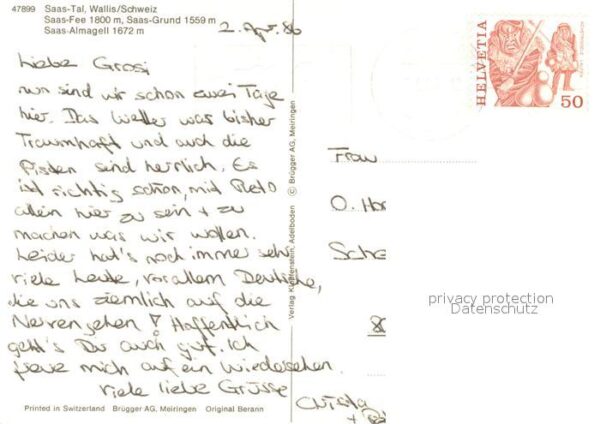 47899 Saas-Tal, Wallis/Schweiz
Saas-Fee 1800 m, Saas-Grund 1559 m
Saas-Almagell 1672 m
2. Apr. 86
Liebe Grosi
nun sind wir schon zwei Tage
hier. Das Wetter war bisher
Traumhaft und auch die
Pisten sind herrlich. Es
ist richtig schön, mit Reto
allein hier zu sein + zu
machen was wir wollen.
Leider hat's noch immer sehr
viele Leute, vor allem Deutsche,
die uns ziemlich auf die
Nerven gehen! Hoffentlich
geht's Dir auch gut. Ich
freue mich auf ein Wiedersehen.
Viele liebe Grüsse
Christa
+
Printed in Switzerland Brügger AG, Meiringen Original Berann
Verlag Klopfenstein, Adelboden © Brügger AG, Meiringen
HELVETIA
50
Frau
O. Hor
Sche
8
privacy protection
Datenschutz